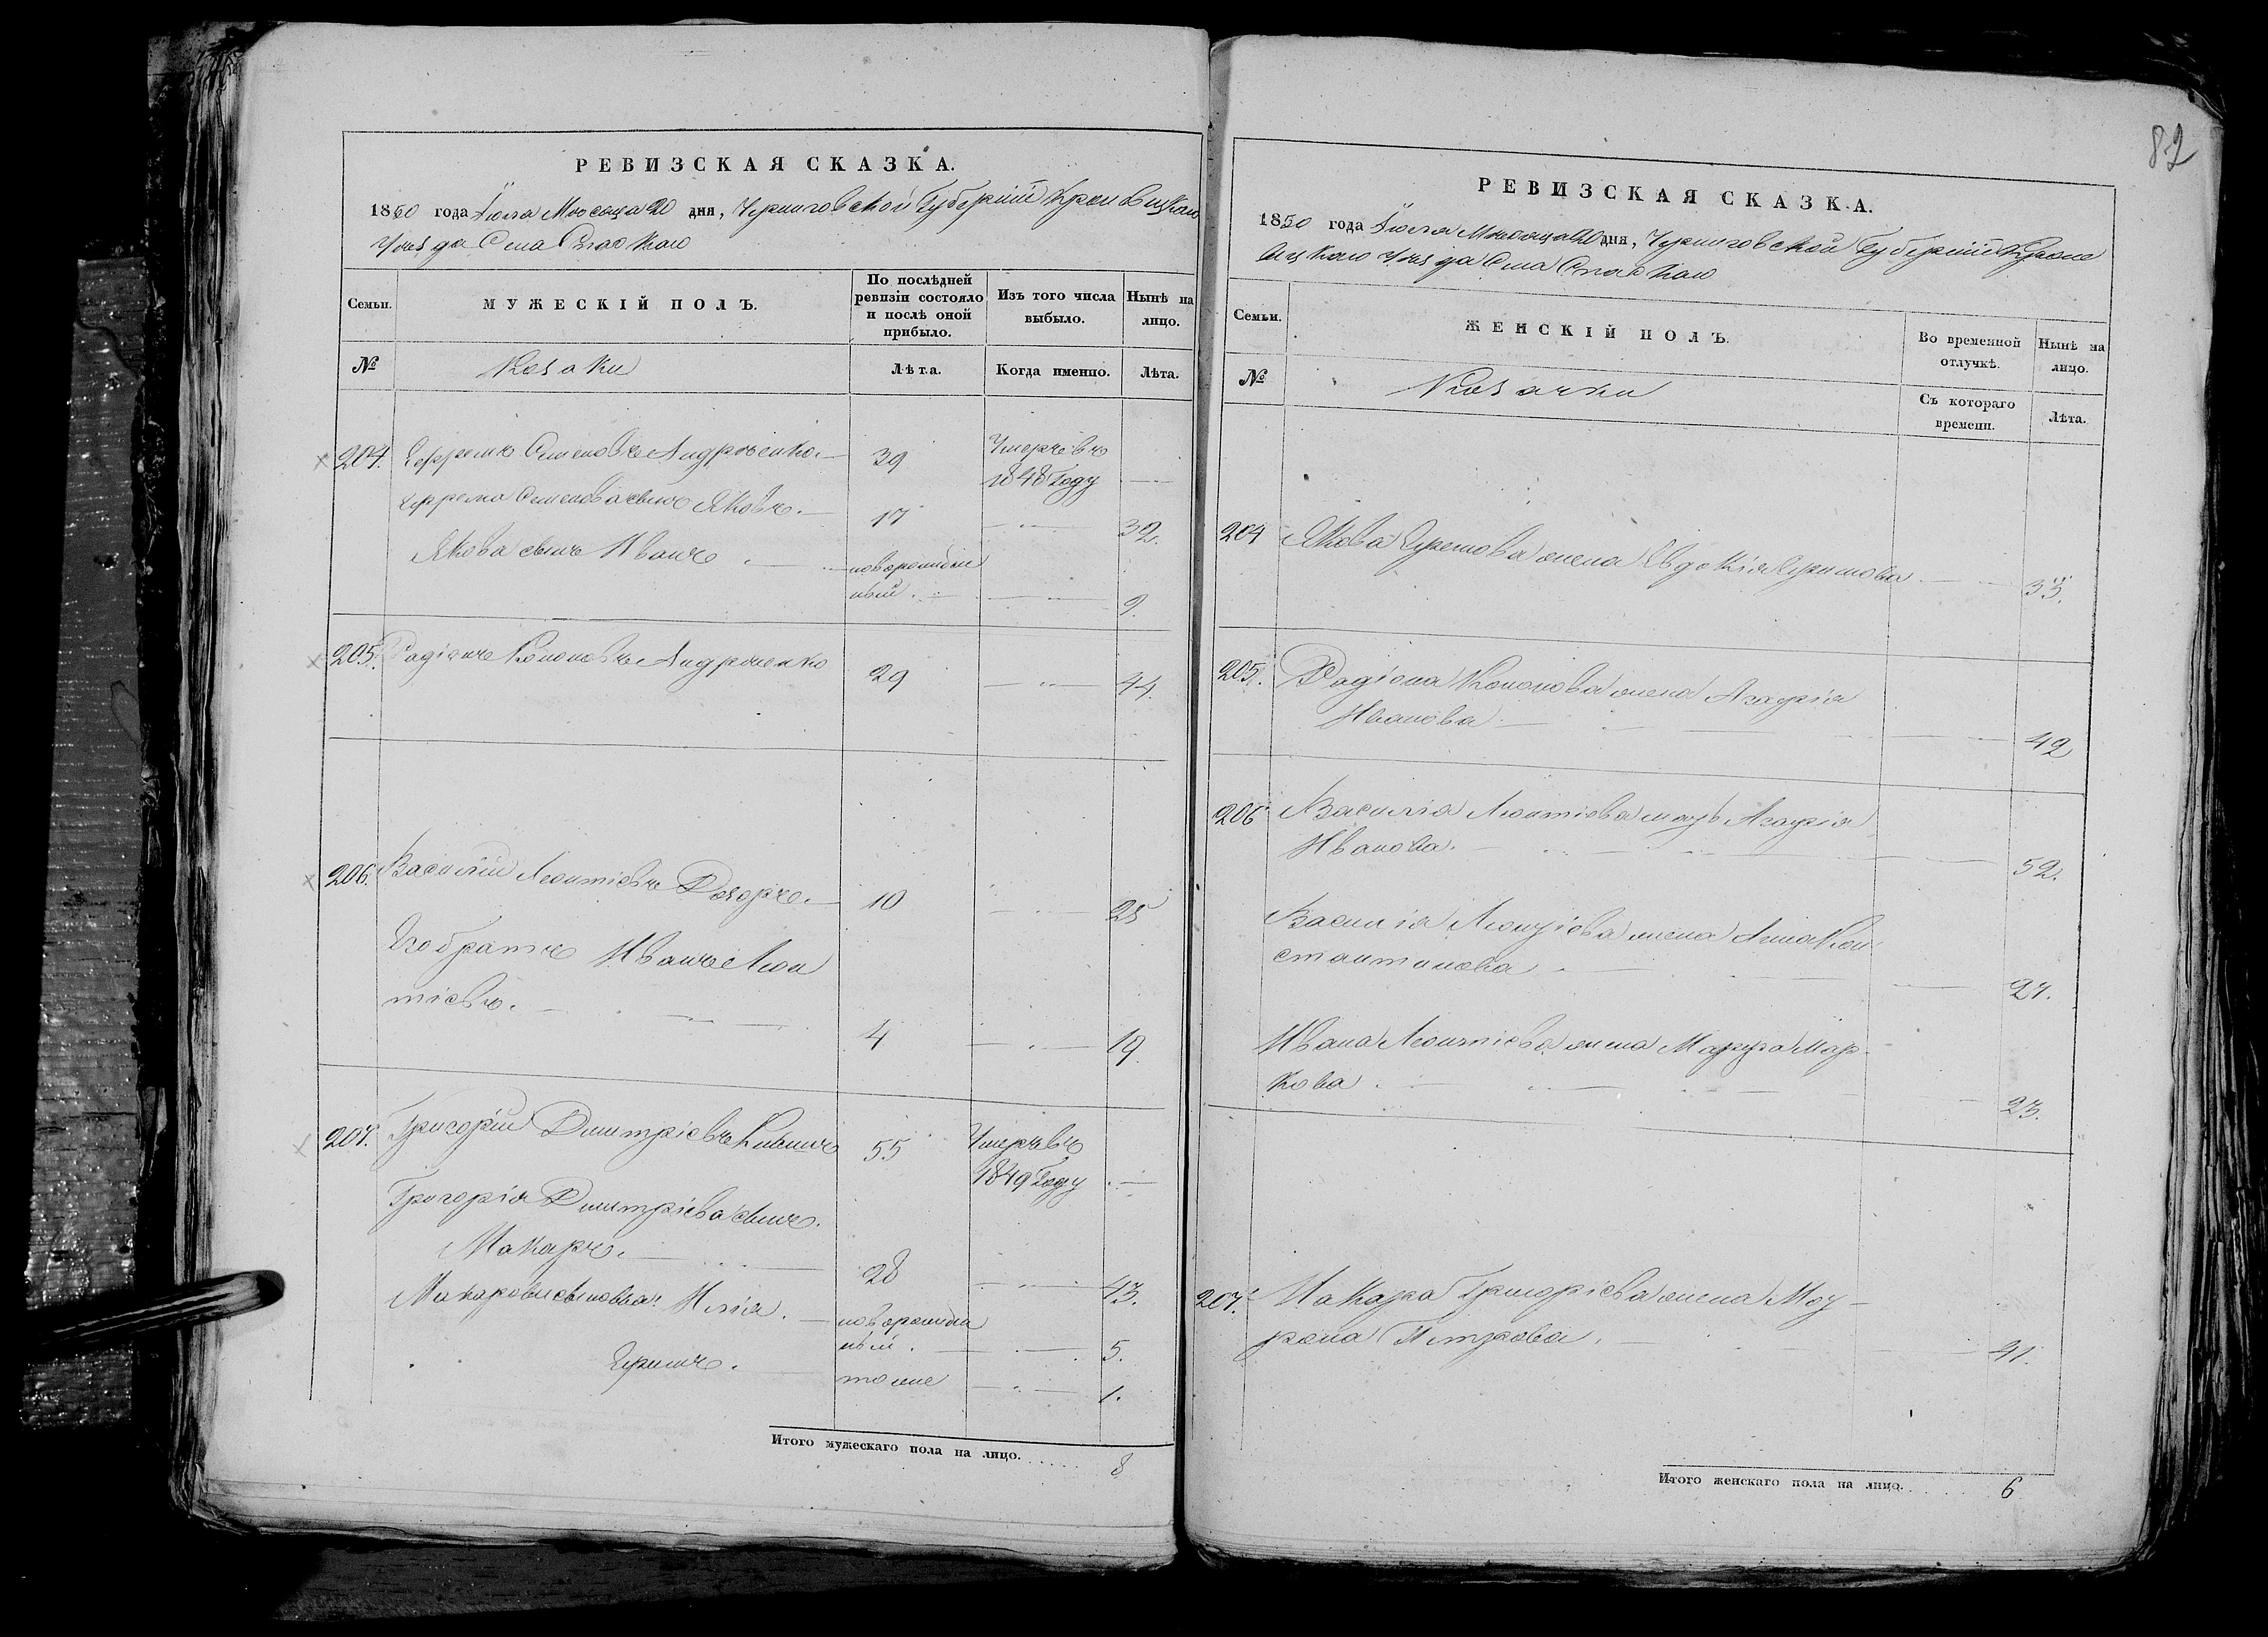 82
РЕВИЗСКАЯ СКАЗКА.
1850 года Іюля Мѣсяца 20 дня, Черниговской Губерніи Кролевецкаго
Уѣзда Села Спаскаго
Семьи.
МУЖЕСКІЙ ПОЛЪ.
По послѣдней ревизіи состояло и послѣ оной прибыло.
Изъ того числа выбыло.
Нынѣ на лицо.
№
Козаки
Лѣта.
Когда именно.
Лѣта.
204. Ефремъ Семеновъ Андрѣенко. 39 Умеръ въ
1848 Году
Ефрема Семенова сынъ Яковъ. 17 32.
Якова сынъ Иванъ новорожден
ный. 9.
205. Радіонъ Кононовъ Андрѣенко 29 44.
206. Василій Леонтіевъ 10 25
Его братъ Иванъ Леон
тіевъ. 4 19.
207. Григорій Димитріевъ 55 Умеръ въ
1849 Году
Григорія Димитріева сынъ.
Макаръ. 28 43.
Макаровы сыновья: Илія. новорожден
ный. 5.
Ефимъ. тоже 1.
Итого мужескаго пола на лицо. 8
РЕВИЗСКАЯ СКАЗКА.
1850 года Іюля Мѣсяца 20 дня, Черниговской Губерніи Кроле
вецкаго Уѣзда Села Спаскаго
Семьи.
ЖЕНСКІЙ ПОЛЪ.
Во временной отлучкѣ.
Нынѣ на лицо.
№
Козачки
Съ котораго времени.
Лѣта.
204 Якова Ефремова жена Евдокія Ефимова 33.
205. Радіона Кононова жена Агафія
Иванова 42
206 Василія Леонтіева мать Агафія
Иванова. 52.
Василія Леонтіева жена Анна Кон
стантинова 27.
Ивана Леонтіева жена Марфа Мар
кова 23.
207. Макара Григоріева жена Мот
рона Петрова. 41.
Итого женскаго пола на лицо. 6